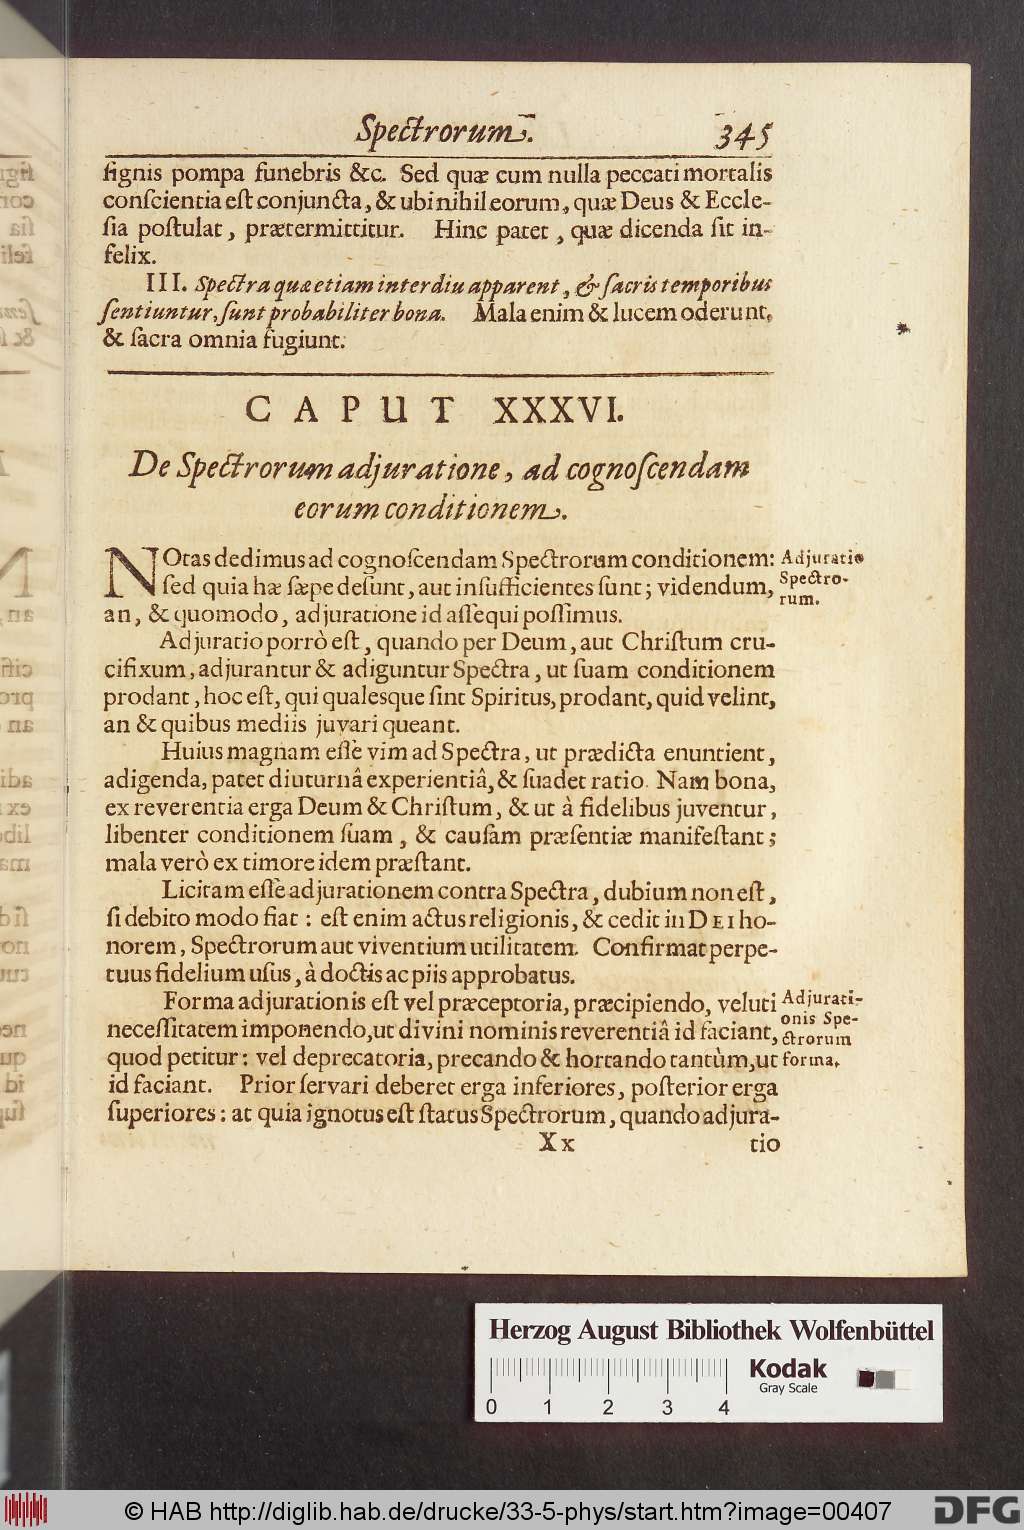 Spectrorum. 345
ſignis pompa funebris &c. Sed quæ cum nulla peccati mortalis
conſcientia eſt conjuncta, & ubi nihil eorum, quæ Deus & Eccle-
ſia poſtulat, prætermittitur. Hinc patet, quæ dicenda ſit in-
felix.
III. Spectra quæ etiam interdiu apparent, & ſacris temporibus
ſentiuntur, ſunt probabiliter bona. Mala enim & lucem oderunt,
& ſacra omnia fugiunt.
CAPUT XXXVI.
De Spectrorum adjuratione, ad cognoſcendam
eorum conditionem.
NOtas dedimus ad cognoſcendam Spectrorum conditionem:
ſed quia hæ ſæpe deſunt, aut inſufficientes ſunt; videndum,
an, & quomodo, adjuratione id aſſequi poſſimus.
Adjuratio
Spectro-
rum.
Adjuratio porrò eſt, quando per Deum, aut Chriſtum cru-
cifixum, adjurantur & adiguntur Spectra, ut ſuam conditionem
prodant, hoc eſt, qui qualesque ſint Spiritus, prodant, quid velint,
an & quibus mediis juvari queant.
Huius magnam eſſe vim ad Spectra, ut prædicta enuntient,
adigenda, patet diuturnâ experientiâ, & ſuadet ratio. Nam bona,
ex reverentia erga Deum & Chriſtum, & ut à fidelibus juventur,
libenter conditionem ſuam, & cauſam præſentiæ manifeſtant;
mala verò ex timore idem præſtant.
Licitam eſſe adjurationem contra Spectra, dubium non eſt,
ſi debito modo fiat: eſt enim actus religionis, & cedit in DEI ho-
norem, Spectrorum aut viventium utilitatem. Confirmat perpe-
tuus fidelium uſus, à doctis ac piis approbatus.
Forma adjurationis eſt vel præceptoria, præcipiendo, veluti
neceſſitatem imponendo, ut divini nominis reverentiâ id faciant,
quod petitur: vel deprecatoria, precando & hortando tantùm, ut
id faciant. Prior ſervari deberet erga inferiores, poſterior erga
ſuperiores: at quia ignotus eſt ſtatus Spectrorum, quando adjura-
Adjurati-
onis Spe-
ctrorum
forma.
Xx tio
Herzog August Bibliothek Wolfenbüttel
0 1 2 3 4
Kodak
Gray Scale
© HAB http://diglib.hab.de/drucke/33-5-phys/start.htm?image=00407
DFG